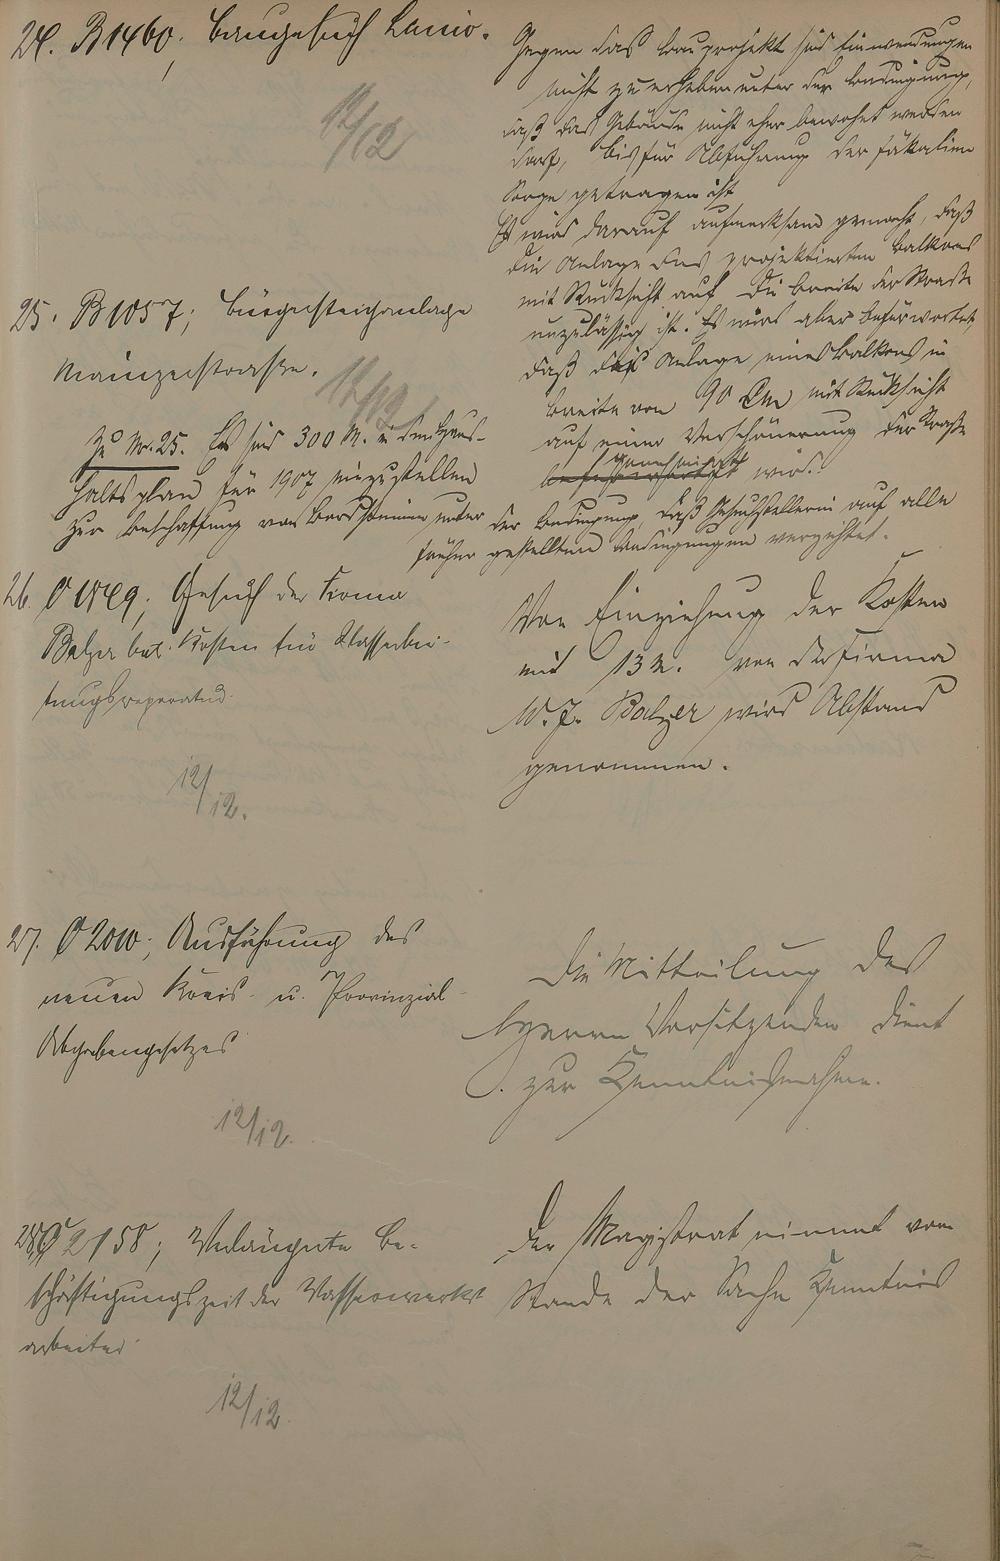 24. B 1460; Baugesuch Lanio.
12/12
Gegen das Bauprojekt sind Einwendungen
nicht zu erheben unter der Bedingung,
daß das Gebäude nicht eher bewohnt werden
darf, bis für Abführung der Fäkalien
Sorge getragen ist
Es wird darauf aufmerksam gemacht, daß
die Anlage des projektierten Balkons
mit Rücksicht auf die Breite der Straße
unzulässig ist. Es wird aber befürwortet
daß die Anlage eines Balkons in
Breite von 90 Cm mit Rücksicht
auf einer Verschönerung der Straße
genehmigt
befürwortet wird.
25. B 1057; Bürgersteiganlage
Mainzerstraße.
12/12
Zu Nr. 25. Es sind 300 M. in den Haus-
haltsplan für 1907 einzustellen
zur Beschaffung von Bordsteinen unter der Bedingung, daß Gesuchstellerin auf alle
früher gestellten Bedingungen verzichtet.
26. O 1849; Gesuch der Firma
Balzer betr. Kosten für Wasserlei-
tungsreparatur.
12/12.
Von Einziehung der Kosten
mit 13 M. von der Firma
W. J. Balzer wird Abstand
genommen.
27. O 2010; Ausführung des
neuen Kreis- u. Provinzial-
Abgabengesetzes
12/12.
Die Mitteilung des
Herrn Vorsitzenden dient
zur Kenntnisnahme.
28. O 2158; Verlängerte Be-
schäftigungszeit der Wasserwerks
arbeiter
12/12
Der Magistrat nimmt vom
Stande der Sache Kenntnis